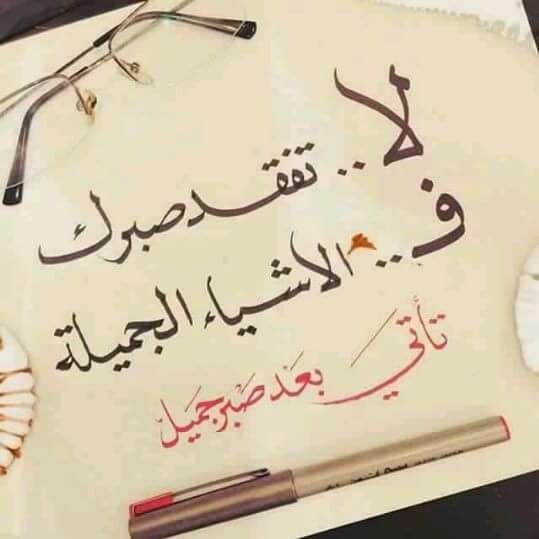 لا .. تفقد صبرك
ف .. الاشياء الجميلة
تأتي بَعَد صَبر جَميل